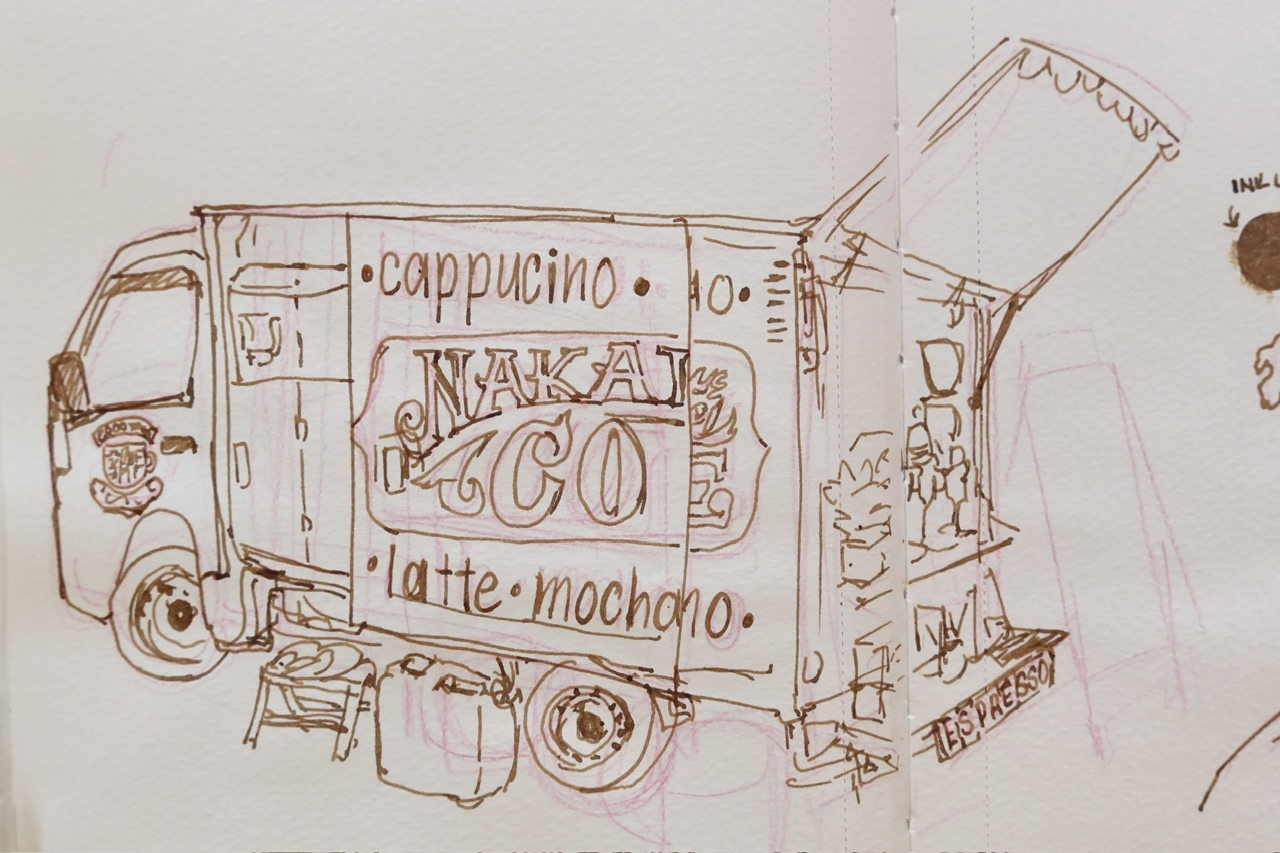 •cappucino •
10•
NAKAI
CO
E
•latte•mochano•
ESPRESSO
INK